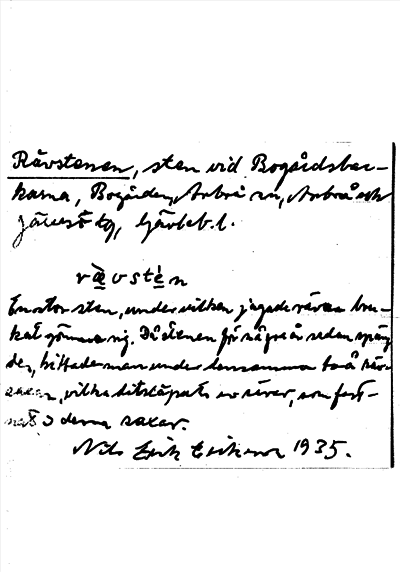 Rävstenen, sten vid Bogårdsbac-
karna, Bogården, Arbrå sn, Arbrå och
Järvsö tg, Gävleb. l.
rævstèn
En stor sten, under vilken jagade rävar bru-
kat gömma sig. Då stenen för några år sedan spräng
des, hittade man under densamma två räv-
saxar, vilka ditsläpats av rävar, som fast-
nat i dema saxar.
Nils Erik Eriksson 1935.